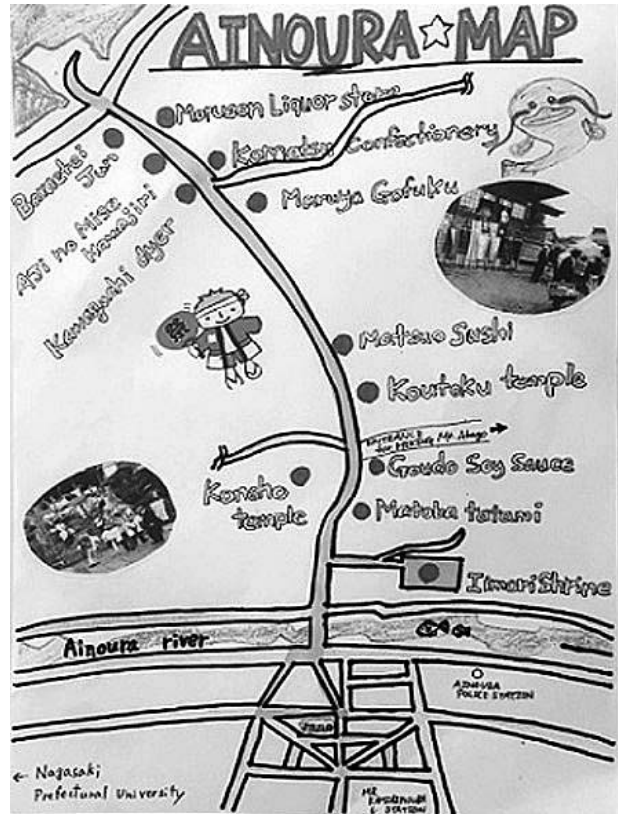 AINOURA☆MAP
Maruzen Liquor store
Komatsu Confectionery
Maruya Gofuku
Jun
Aji no Mise
Kawajiri
Kawaguchi dyer
Matsuo Sushi
Koutoku temple
ENTRANCE
for Mt. Atago
Goudo Soy Sauce
Konsho
temple
Matoba tatami
Iimori Shrine
Ainoura river
AINOURA
POLICE STATION
← Nagasaki
Prefectural University
MR
STATION